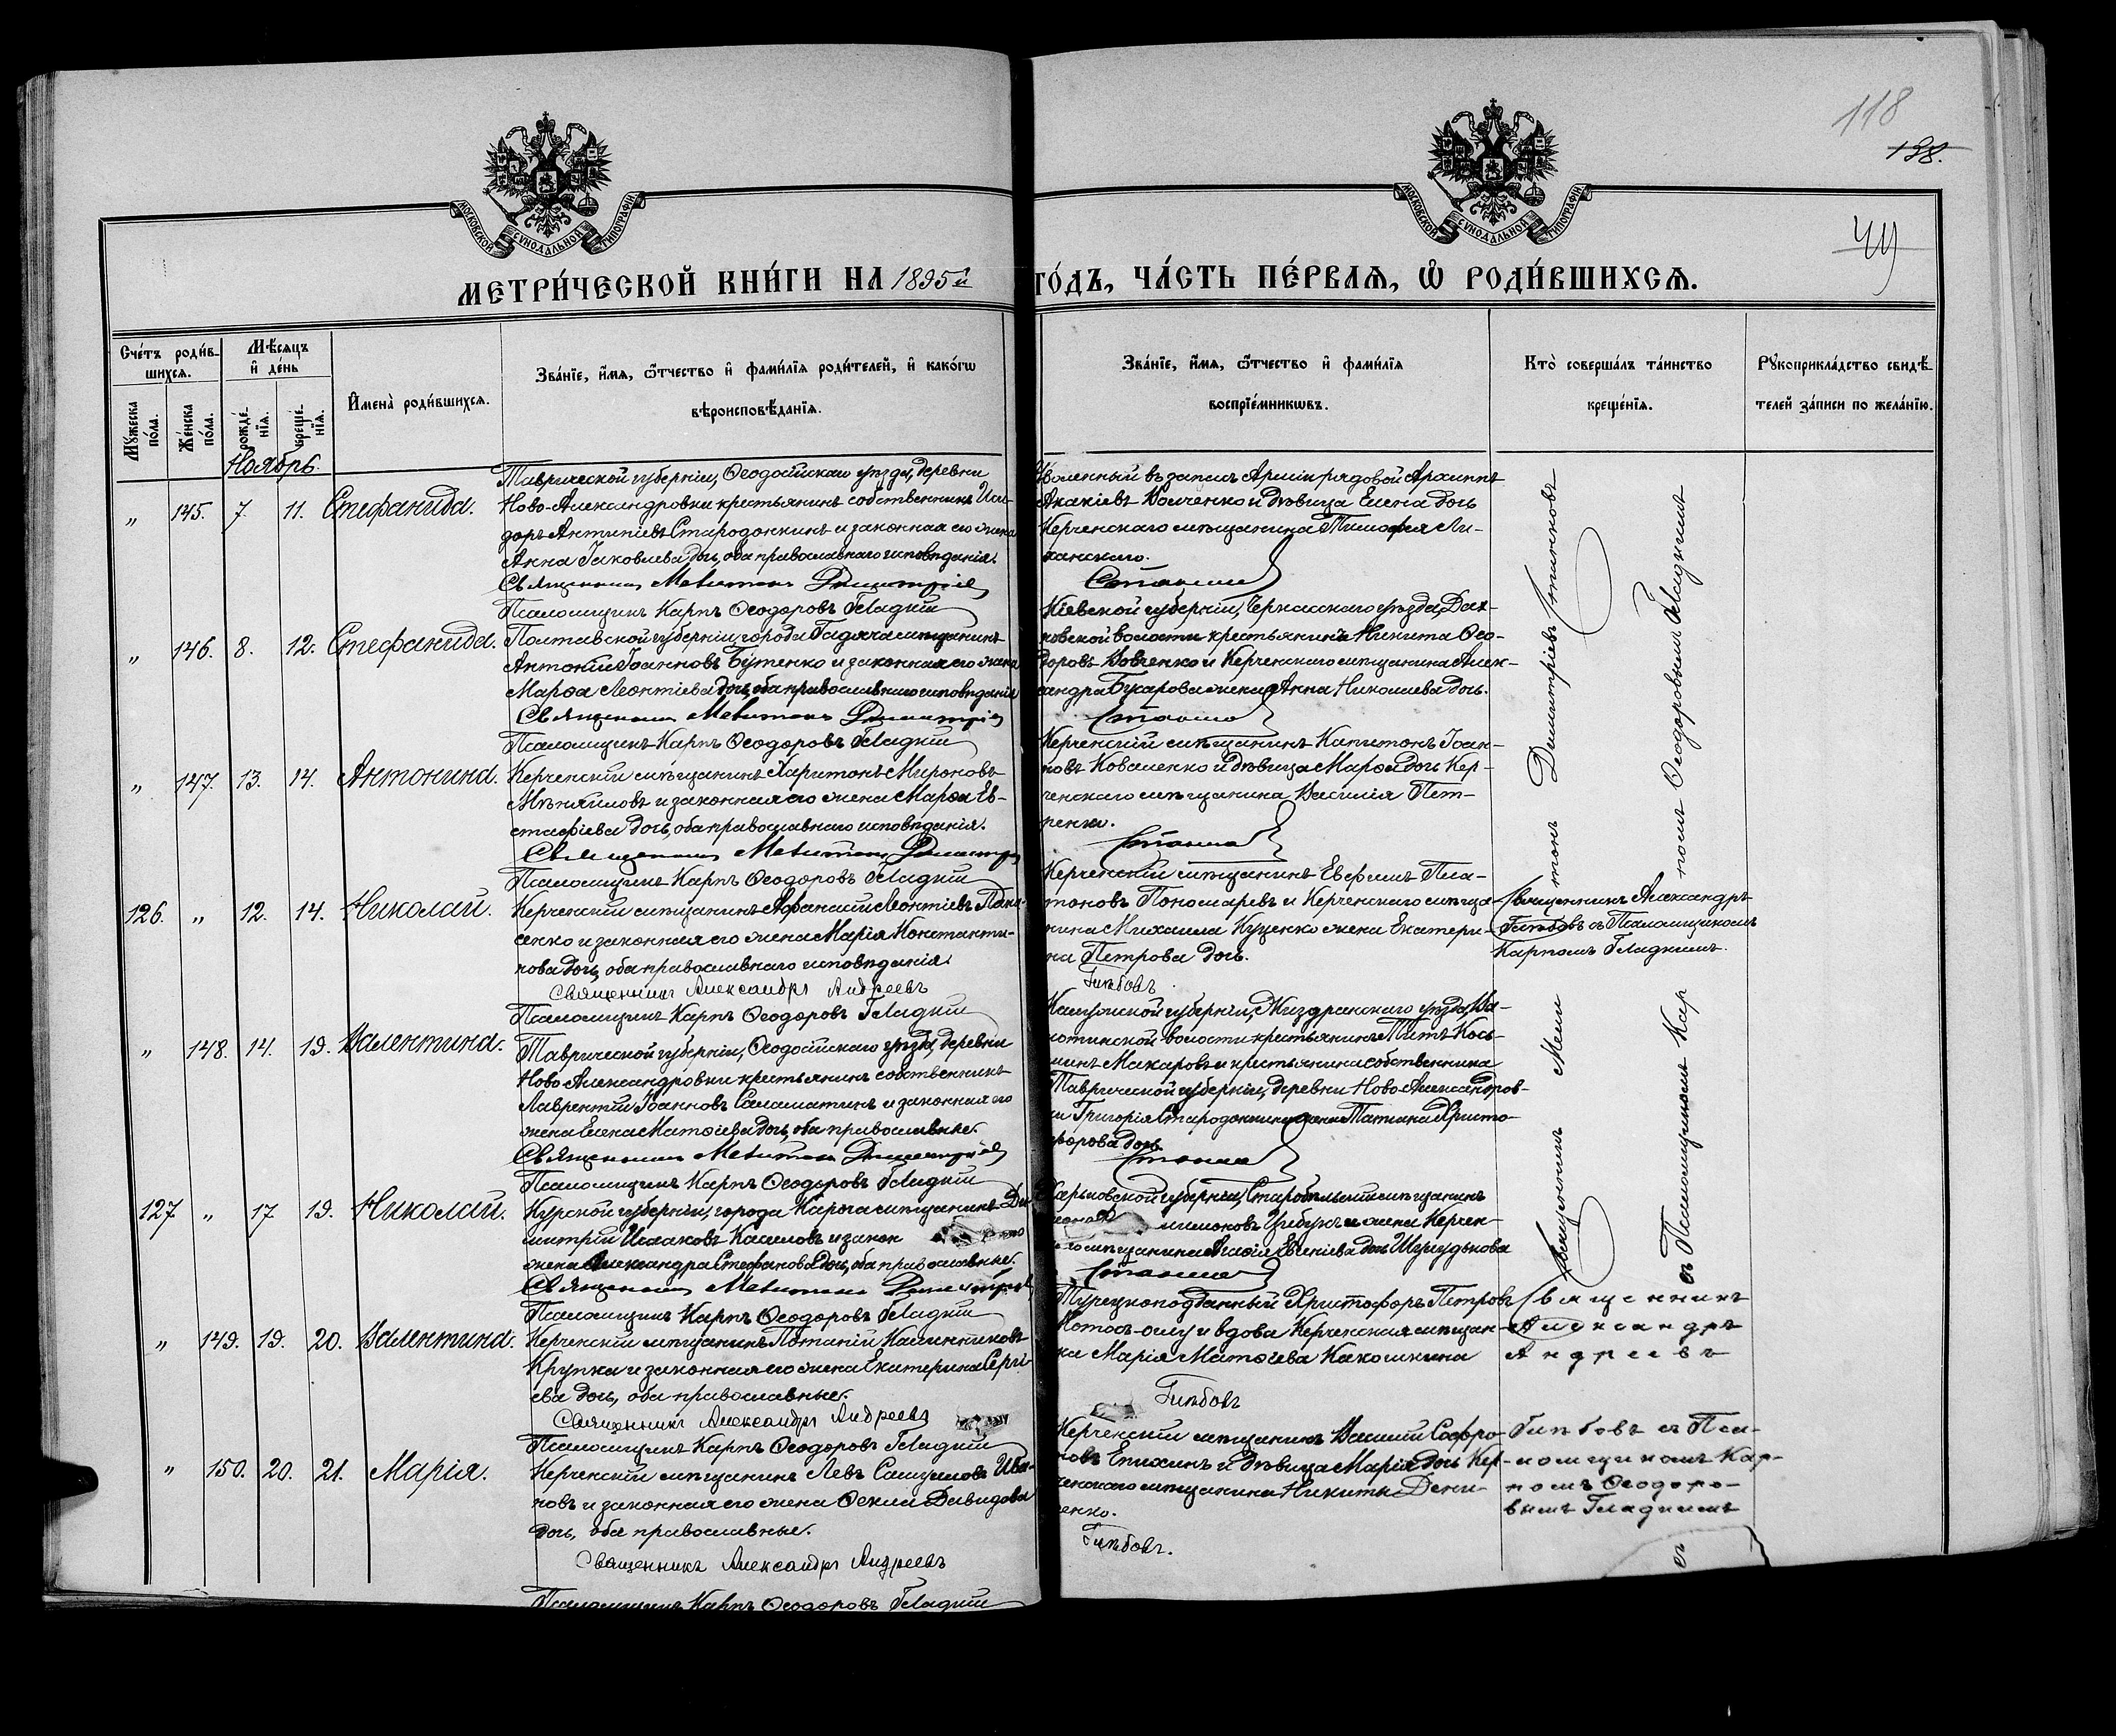 118
138.
49
МОСКОВСКОЙ СѴНОДАЛЬНОЙ ТИПОГРАФІИ
МОСКОВСКОЙ СѴНОДАЛЬНОЙ ТИПОГРАФІИ
МЕТРИ́ЧЕСКОЙ КНИ́ГИ НА 1895й
ГО́ДЪ, ЧА́СТЬ ПЕ́РВАѦ, Ѽ РОДИ́ВШИХСѦ.
Сче́тъ роди́в-
шихсѧ.
Мѣ́сѧцъ
и҆ де́нь
Мꙋ́жеска
по́ла.
Же́нска
по́ла.
рожде́-
нїѧ.
креще́-
нїѧ.
И҆мена̀ роди́вшихсѧ.
Зва́нїе, и҆́мѧ, ѻ҆́тчество и҆ фами́лїѧ роди́телей, и҆ како́гѡ
вѣроисповѣ́данїѧ.
Зва́нїе, и҆́мѧ, ѻ҆́тчество и҆ фами́лїѧ
воспрїе́мникѡвъ.
Кто̀ соверша́лъ та́инство
креще́нїѧ.
Рꙋкоприкла́дство свидѣ́-
телей за́писи по жела́нїю.
Ноябрь.
„ 145. 7. 11. Стефанида.
Таврической губерніи, Ѳеодосійскаго уѣзда, деревни
Ново-Александровки крестьянинъ собственникъ Иси-
доръ Антиповъ Стародонкинъ и законная его жена
Анна Іаковлева дочь, оба православнаго исповѣданія.
Священникъ Мелитонъ Димитріев
Псаломщикъ Карпъ Ѳеодоровъ Гладкій
Уволенный въ запасъ Арміи рядовой Архиппъ
Акакіевъ Волченко и дѣвица Елена дочь
Керченскаго мѣщанина Тимофея Ли-
ханскаго.
„ 146. 8. 12. Стефанида.
Полтавской губерніи, города Гадяча мѣщанинъ
Антоній Іоанновъ Бутенко и законная его жена
Марѳа Леонтіева дочь, оба православнаго исповѣданія
Священникъ Мелитонъ Димитріев
Псаломщикъ Карпъ Ѳеодоровъ Гладкій
Кіевской губерніи, Черкасскаго уѣзда, Дах-
новской волости крестьянинъ Никита Ѳео-
доровъ Вовченко и Керченскаго мѣщанина Алек-
сандра Бухарова жена Анна Николаева дочь.
„ 147. 13. 14. Антонина.
Керченскій мѣщанинъ Харитонъ Мироновъ
Мѣняиловъ и законная его жена Марѳа Ев-
стафіева дочь, оба православнаго исповѣданія.
Священникъ Мелитонъ Димитр
Псаломщикъ Карпъ Ѳеодоровъ Гладкій
Керченскій мѣщанинъ Капитонъ Іоан-
новъ Коваленко и дѣвица Марѳа дочь Кер-
ченскаго мѣщанина Василія Пет-
ренко.
126. „ 12. 14. Николай.
Керченскій мѣщанинъ Аѳанасій Леонтіевъ Пана-
сенко и законная его жена Марія Константи-
нова дочь, оба православнаго исповѣданія.
Священникъ Александръ Андреевъ
Псаломщикъ Карпъ Ѳеодоровъ Гладкій
Керченскій мѣщанинъ Евфимъ Пла-
тоновъ Пономаревъ и Керченскаго мѣща-
нина Михаила Куценко жена Екатери-
на Петрова дочь.
Глѣбовъ.
Священникъ Александръ
Глѣбовъ съ Псаломщикомъ
Карпомъ Гладкимъ.
„ 148. 14. 19. Валентина.
Таврической губерніи, Ѳеодосійскаго уѣзда, деревни
Ново Александровки крестьянинъ собственникъ
Лаврентій Іоанновъ Саламатинъ и законная его
жена Елена Матѳеева дочь, оба православные.
Священникъ Мелитонъ Димитріев
Псаломщикъ Карпъ Ѳеодоровъ Гладкій
Калужской губерніи, Жиздринскаго уѣзда,
волости крестьянинъ Титъ Кось-
минъ Макаровъ и крестьянина собственника
Таврической губерніи, деревни Ново-Александров-
ки Григорія Стародонкина жена Татіана Христо-
форова дочь.
127 „ 17 19. Николай.
Курской губерніи, города Карочи мѣщанинъ Ди-
митрій Исааковъ Кашловъ и закон
жена Александра Стефанова дочь, оба православные.
Священникъ Мелитонъ Димитріев
Псаломщикъ Карпъ Ѳеодоровъ Гладкій
Харьковской губерніи, Старобѣльскій мѣщанинъ
Цибулк и жена Керчен-
мѣщанина Агафія Евгеніева дочь
„ 149. 19. 20. Валентина.
Керченскій мѣщанинъ Потапій Калинниковъ
Крупка и законная его жена Екатерина Серги-
ева дочь, оба православные.
Священникъ Александръ Андреевъ
Псаломщикъ Карпъ Ѳеодоровъ Гладкій
Турецкоподданный Христофоръ Петровъ
Котосъ-оглу и вдова Керченская мѣщан-
ка Марія Матѳеева Какошкина
Глѣбовъ
Священникъ
Александръ
Андреевъ
Глѣбовъ съ Пса-
ломщикомъ Кар-
помъ Ѳеодоро-
вымъ Гладкимъ
„ 150. 20. 21. Марія.
Керченскій мѣщанинъ Левъ Самуиловъ Ива-
новъ и законная его жена Ѳекла Давидова
дочь, оба православные.
Священникъ Александръ Андреевъ
Псаломщикъ Карпъ Ѳеодоровъ Гладкій
Керченскій мѣщанинъ Василій Софро-
новъ Епихинъ и дѣвица Марія дочь Кер-
ченскаго мѣщанина Никиты Дени-
сенко.
Глѣбовъ.
Священникъ Мелитонъ Димитріевъ
съ Псаломщикомъ Карпомъ Ѳеодоровымъ Гладкимъ
съ